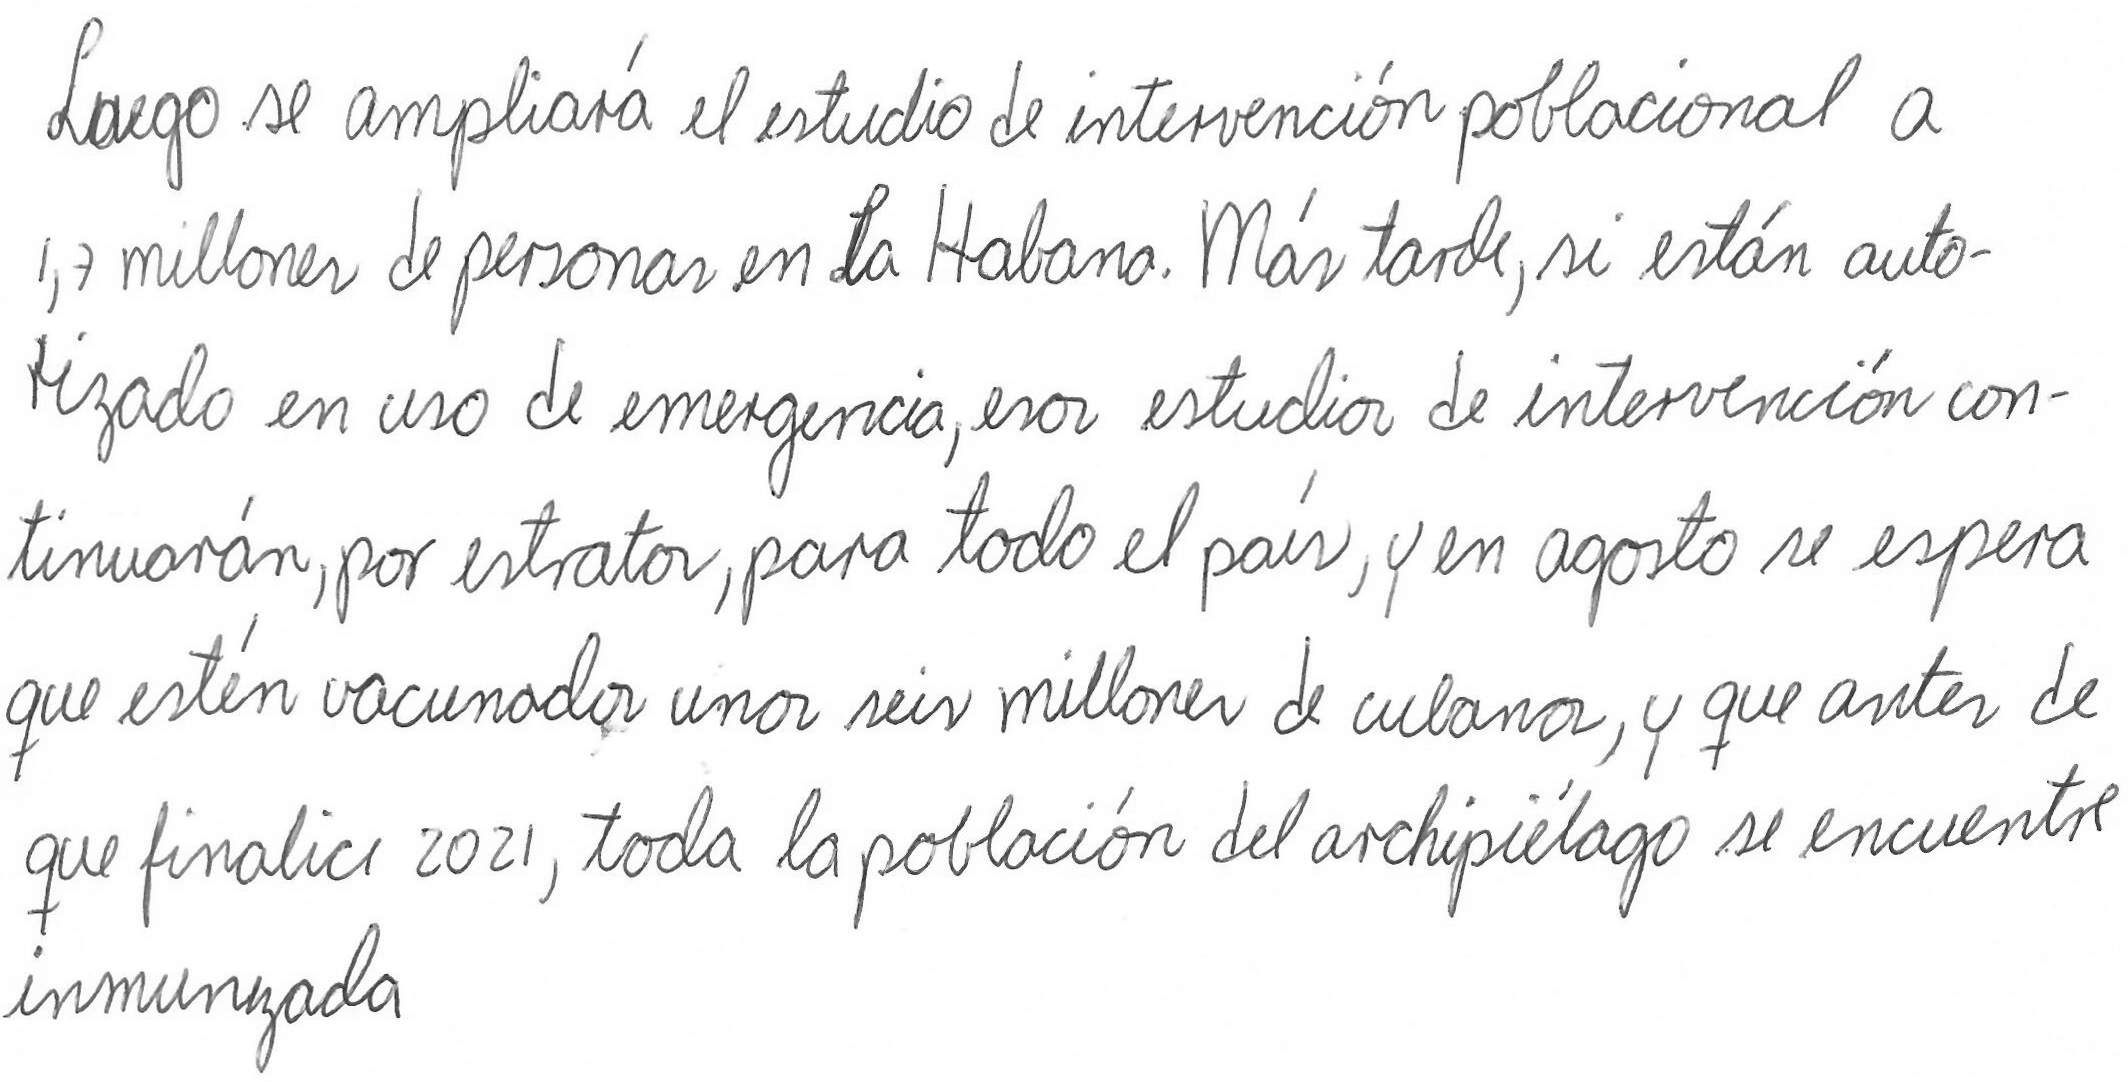 Luego se ampliará el estudio de intervención poblacional a
1,7 millones de personas en La Habana. Más tarde, si están auto-
rizado en uso de emergencia, esos estudios de intervención con-
tinuarán, por estratos, para todo el país, y en agosto se espera
que estén vacunados unos seis millones de cubanos, y que antes de
que finalice 2021, toda la población del archipiélago se encuentre
inmunizada